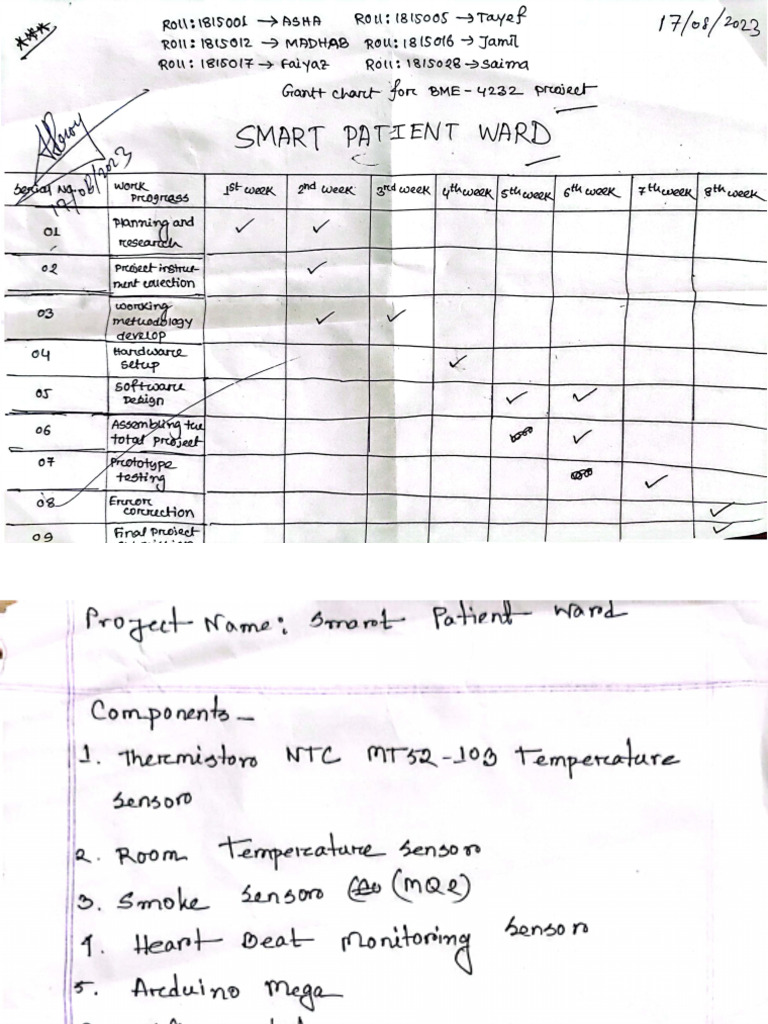 ***
Roll: 1815001 → ASHA Roll: 1815005 → Tayef
17/08/2023
Roll: 1815012 → MADHAB Roll: 1815016 → Jamil
Roll: 1815017 → Faiyaz Roll: 1815028 → Saima
Gantt chart for BME - 4232 project
SMART PATIENT WARD
17/08/2023
Serial No. Work Progress 1st week 2nd week 3rd week 4th week 5th week 6th week 7th week 8th week
01 Planning and ✓ ✓
research
02 Project instru- ✓
ment collection
03 Working ✓ ✓
methodology
develop
04 Hardware ✓
setup
05 Software ✓ ✓
Design
06 Assembling the ✓
total project
07 Prototype ✓
testing
08 Error ✓
correction
09 Final project ✓
Project Name: Smart Patient Ward
Components -
1. Thermistor NTC MT52-103 Temperature
sensor
2. Room Temperature sensor
3. Smoke sensor (MQ2)
4. Heart Beat Monitoring sensor
5. Arduino Mega